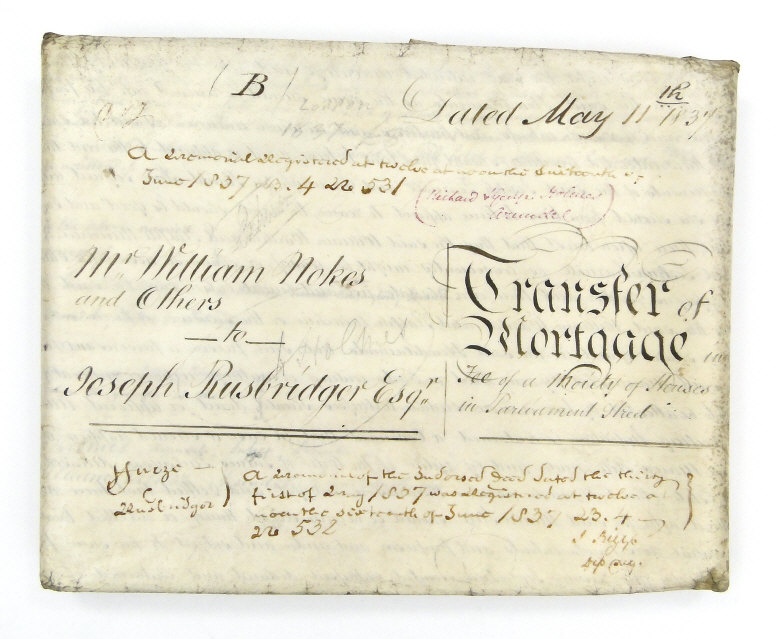 (B)
London
Dated May 11th 1837
A Memorial Registered at twelve at noon the Sixteenth of
June 1837 B. 4 No 531
(Richard Holmes
Arundel)
Mr. William Nokes
and Others
— to —
Joseph Rusbridger Esqr.
Transfer of
Mortgage in
Fee of a Moiety of Houses
in Parliament Street
Holmes
A Memorial of the Indorsed Deed dated the thirty
first of May 1837 was Registered at twelve at
noon the Sixteenth of June 1837 B. 4
No 532
J Rigge
Dep Reg.